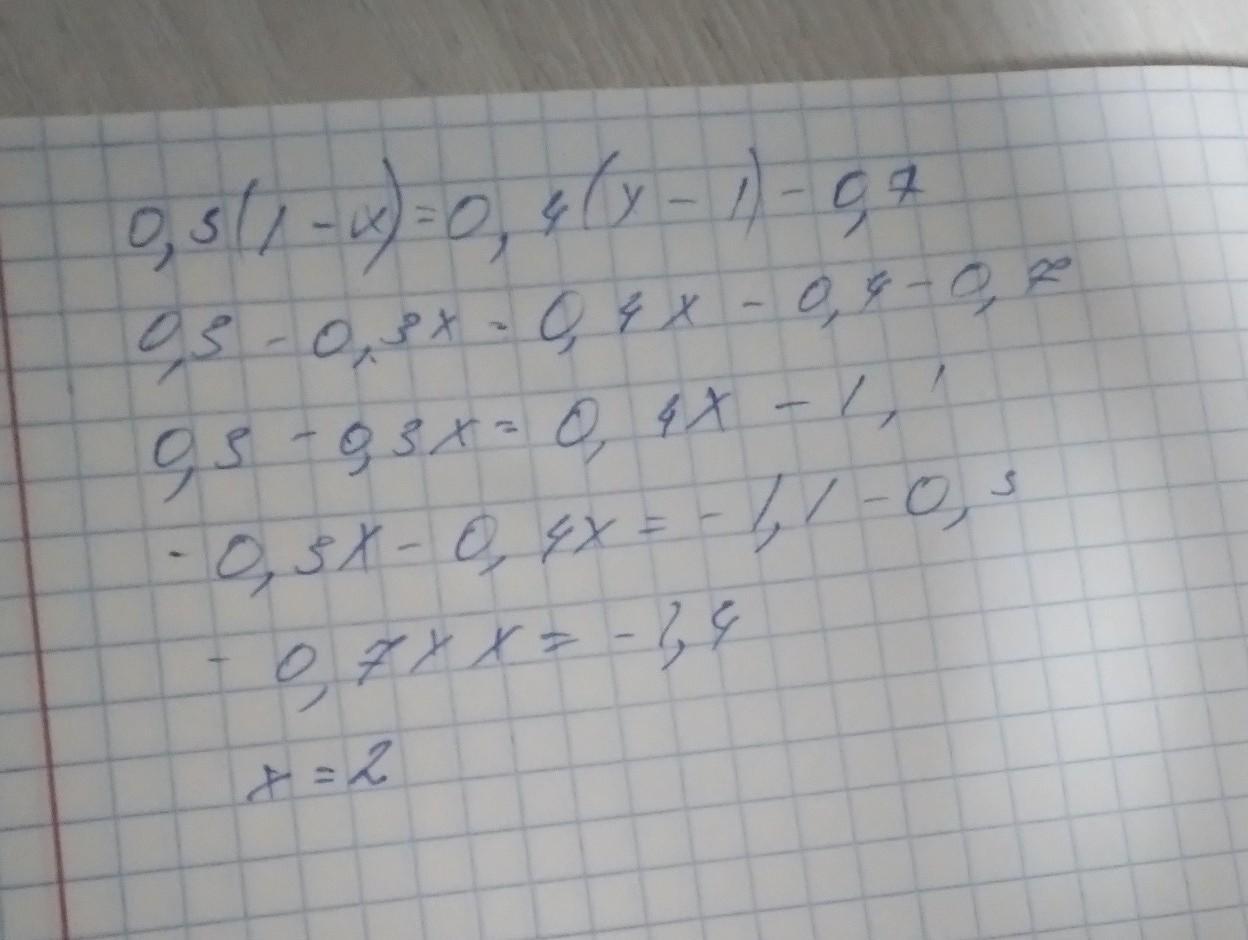 0,3(1-x)=0,4(x-1)-0,7
0,3-0,3x=0,4x-0,4-0,7
0,3-0,3x=0,4x-1,1
-0,3x-0,4x=-1,1-0,3
-0,7xx=-1,4
x=2